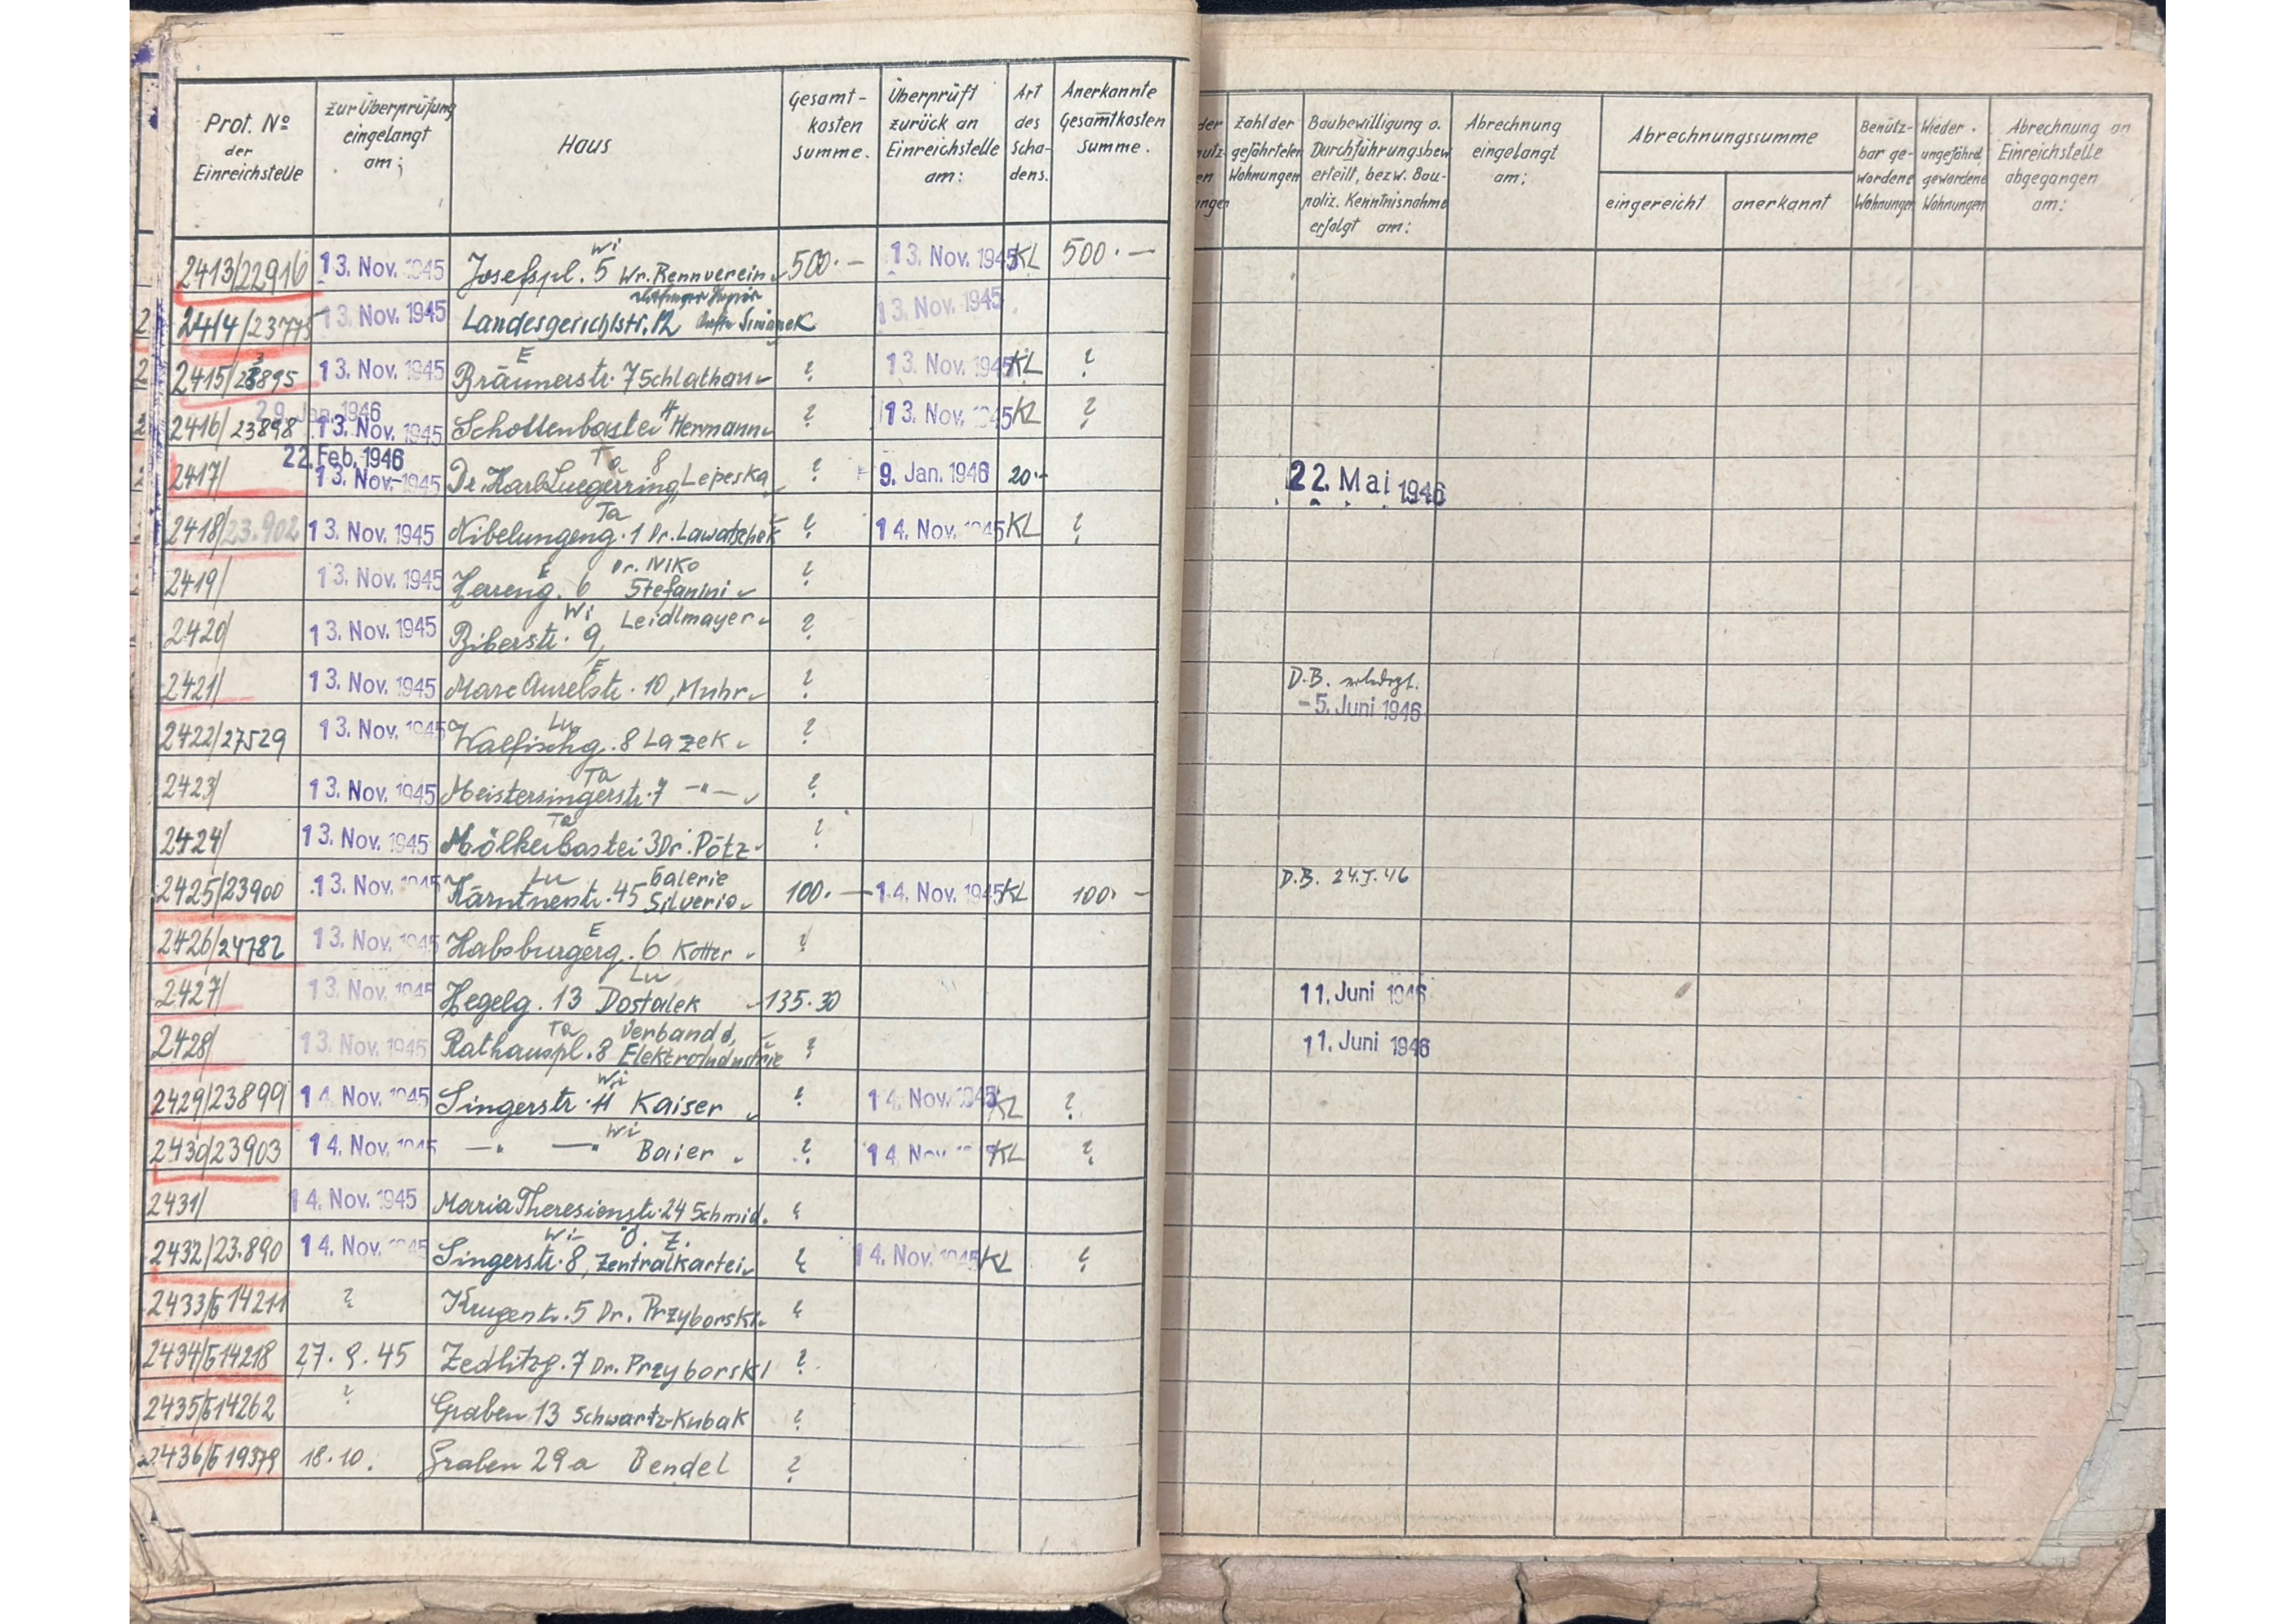 Prot. No der Einreichstelle | zur Überprüfung eingelangt am; | Haus | Gesamt-kosten summe. | Überprüft zurück an Einreichstelle am: | Art des Scha-dens. | Anerkannte Gesamtkosten summe. | Zahl der gefährteten Wohnungen | Baubewilligung o. Durchführungsbew erteilt, bezw. Bau-poliz. Kenntnisnahme erfolgt am: | Abrechnung eingelangt am; | Abrechnungssumme eingereicht | anerkannt | Benütz-bar ge-wordene Wohnungen | Wieder. ungefährd. gewordene Wohnungen | Abrechnung an Einreichstelle abgegangen am:
2413/22916 | 13. Nov. 1945 | Wi Josefspl. 5 Wr. Rennverein | 500.— | 13. Nov. 1945 | KL | 500.—
2414/23775 | 13. Nov. 1945 | Landesgerichtstr. 12 Simanek | 13. Nov. 1945
2415/23895 | 13. Nov. 1945 | E Bräunerstr. 7 Schlathau | ? | 13. Nov. 1945 | KL | ?
29. Jan. 1946
2416/23898 | 13. Nov. 1945 | Schottenbastei 4 Hermann | ? | 13. Nov. 1945 | KL | ?
22. Feb. 1946
2417/ | 13. Nov. 1945 | Ta Dr. Karl Luegerring 8 Lepeska | ? | 9. Jan. 1946 | 20.- | 22. Mai 1946
2418/23.902 | 13. Nov. 1945 | Ta Nibelungeng. 1 Dr. Lawatschek | ? | 14. Nov. 1945 | KL | ?
2419/ | 13. Nov. 1945 | E Herreng. 6 Dr. Niko Stefanini | ?
2420/ | 13. Nov. 1945 | Wi Biberstr. 9, Leidlmayer | ?
2421/ | 13. Nov. 1945 | E Marc Aurelstr. 10, Muhr | ? | D.B. erledigt. -5. Juni 1946
2422/27529 | 13. Nov. 1945 | Lu Walfischg. 8 Lazek | ?
2423/ | 13. Nov. 1945 | Ta Meistersingerstr. 7 —"— | ?
2424/ | 13. Nov. 1945 | Ta Mölkerbastei 3 Dr. Pötz | ?
2425/23900 | 13. Nov. 1945 | Lu Kärntnerstr. 45 Galerie Silverio | 100.— | 14. Nov. 1945 | KL | 100.- | D.B. 24.I.46
2426/24782 | 13. Nov. 1945 | E Habsburgerg. 6 Kotter | ?
2427/ | 13. Nov. 1945 | Lu Hegelg. 13 Dostalek | 135.30 | 11. Juni 1946
2428/ | 13. Nov. 1945 | Ta Rathauspl. 8 Verband d. Elektroindustrie | ? | 11. Juni 1946
2429/23899 | 14. Nov. 1945 | Wi Singerstr. 11 Kaiser | ? | 14. Nov. 1945 | KL | ?
2430/23903 | 14. Nov. 1945 | Wi —" —" Baier | ? | 14. Nov | KL | ?
2431/ | 14. Nov. 1945 | Maria Theresienstr. 24 Schmid. | ?
2432/23.890 | 14. Nov. 1945 | Wi Singerstr. 8, Ö. Z. Zentralkartei | ? | 14. Nov. 1945 | KL | ?
2433/б 14211 | ? | Krugerstr. 5 Dr. Przyborski | ?
2434/б 14218 | 27.9.45 | Zedlitzg. 7 Dr. Przyborski | ?
2435/б 14262 | ? | Graben 13 Schwartz-Kubak | ?
2436/б 19379 | 18.10. | Graben 29a Bendel | ?